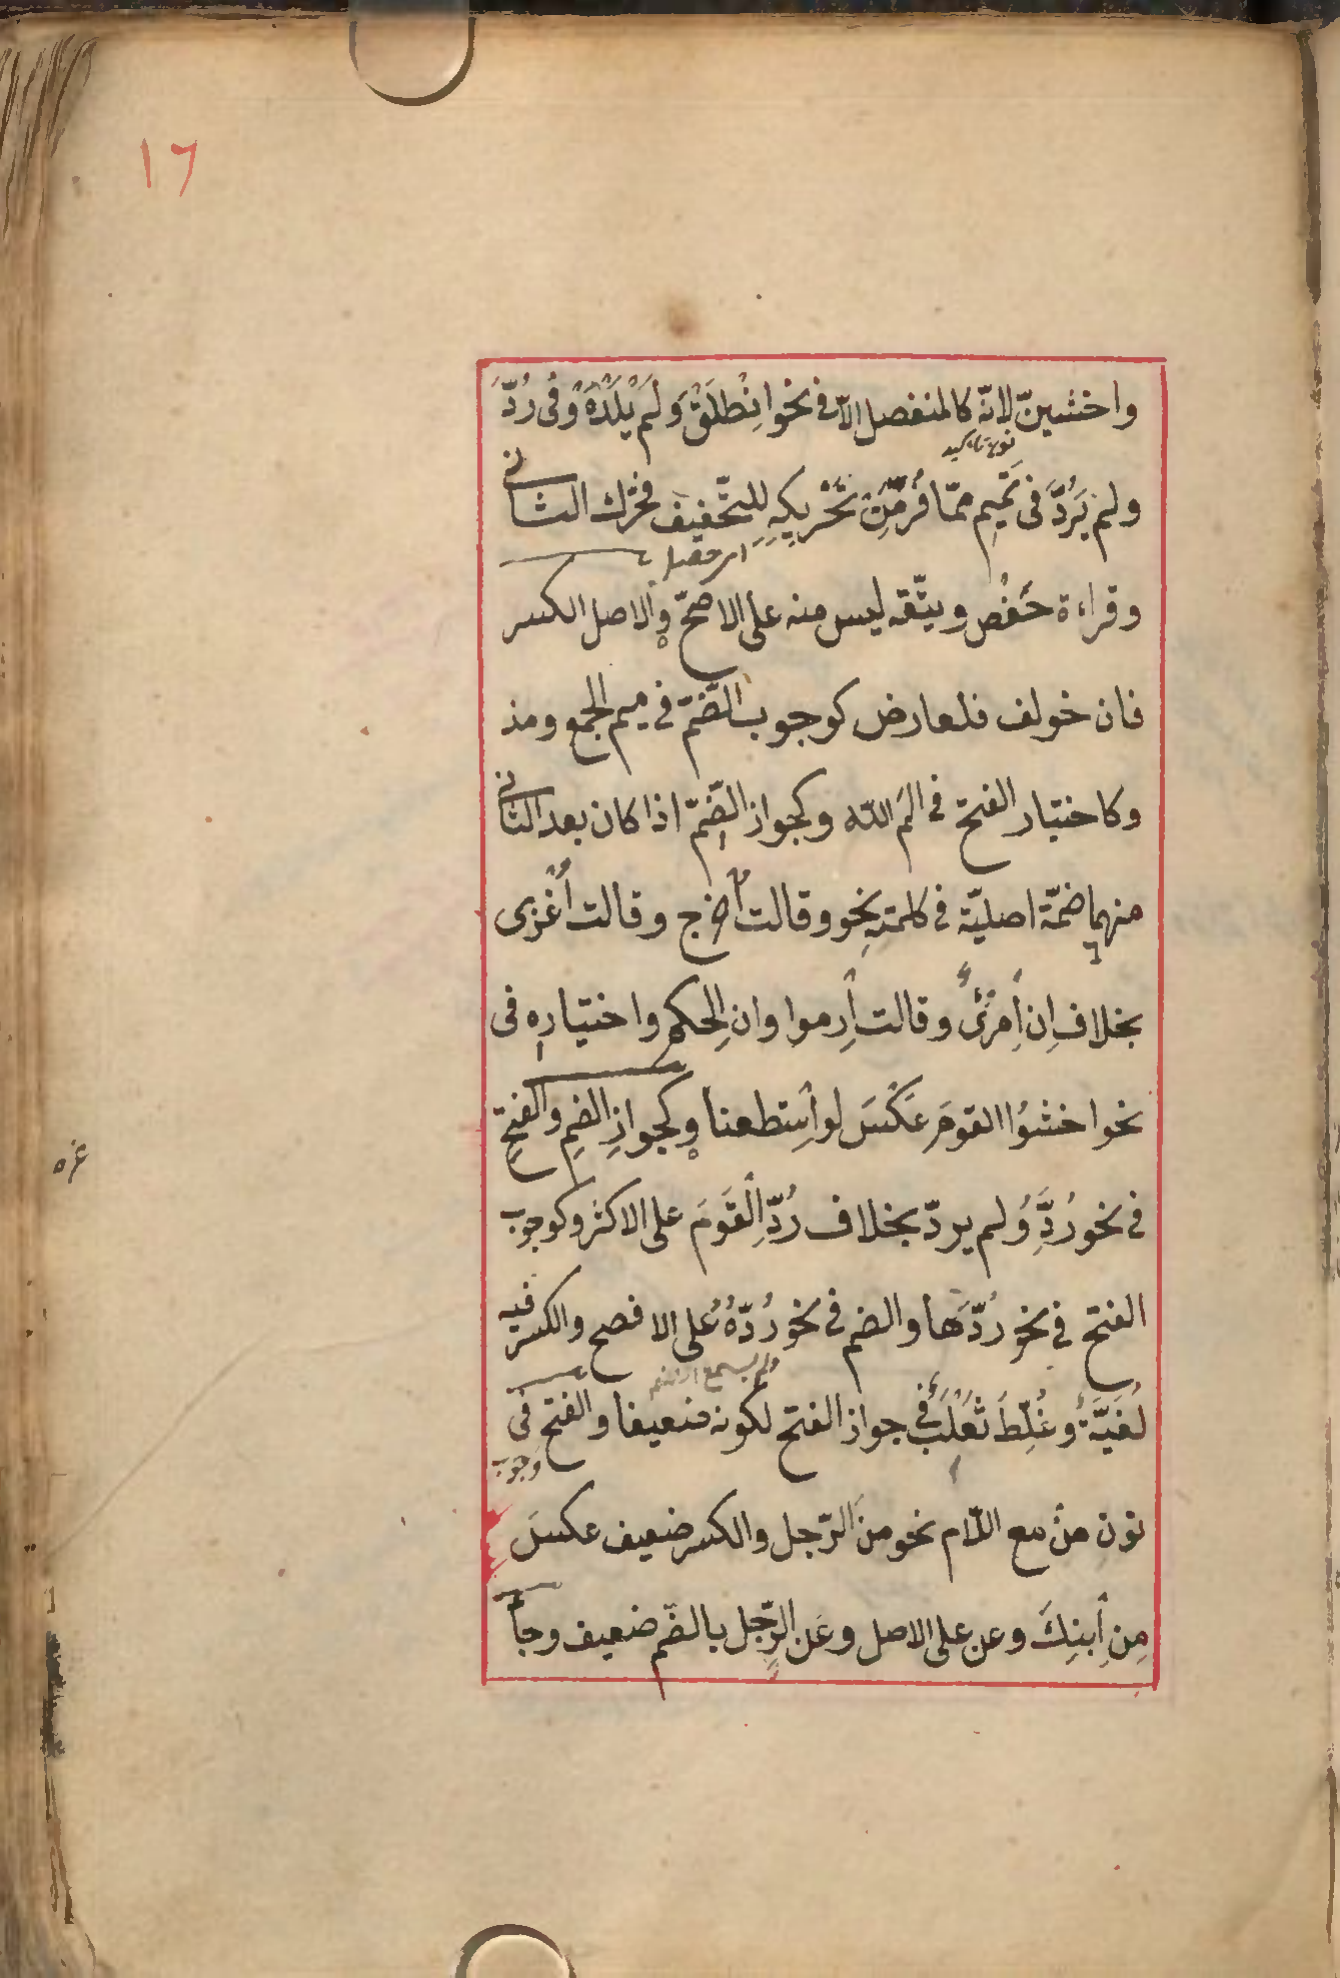 ١٦
واخشينّ لانّه كالمنفصل الّا فى نحو انْطَلْقَ وَلَمْ يَلْدَهُ وَفى رُدَّ
نون تاكيد
ولم يَرُدَّ فى تَمِيمٍ ممّا فُرَّ مِنْ تَحْرِيكِهِ لِلتَّخْفِيفِ فحُرِّك الثانى
وقراءة حَفْصٍ ويتّقه ليس منه على الاصحّ والاصل الكسر
فان خولف فلعارض كوجوب الضّمّ فى ميم الجمع ومذ
وكاختيار الفتح فى الَم الله وكجواز الضّمّ اذا كان بعد الثانى
منهما ضمّة اصليّة فى كلمته نحو وقالت اُخرج وقالت اُغْزى
بخلاف اِن اِمْرُؤٌ وقالت اِرموا وان اِلحكم واختياره فى
نحو اخشَوُا القومَ عَكْسَ لو اسْتطعنا وكجوازِ الضمِ والفتحِ
غره
فى نحو رُدَّ وَلم يردّ بخلاف رُدِّ الْقَوَمَ على الاكثر وكوجوب
الفتح فى نحو رُدَّهَا والضم فى نحو رُدّهُ على الافصح والكسر فيه
لُغَيَّةٌ وغُلِّطَ ثَعْلَبٌ فى جواز الفتح لكونه ضعيفا والفتح فى
وجوب
نون مِنْ مع اللّام نحو منَ الرّجل والكسر ضعيف عكسَ
مِنِ اِبنِكَ وعن على الاصل وعَن الرّجل بالضّم ضعيف وجاء